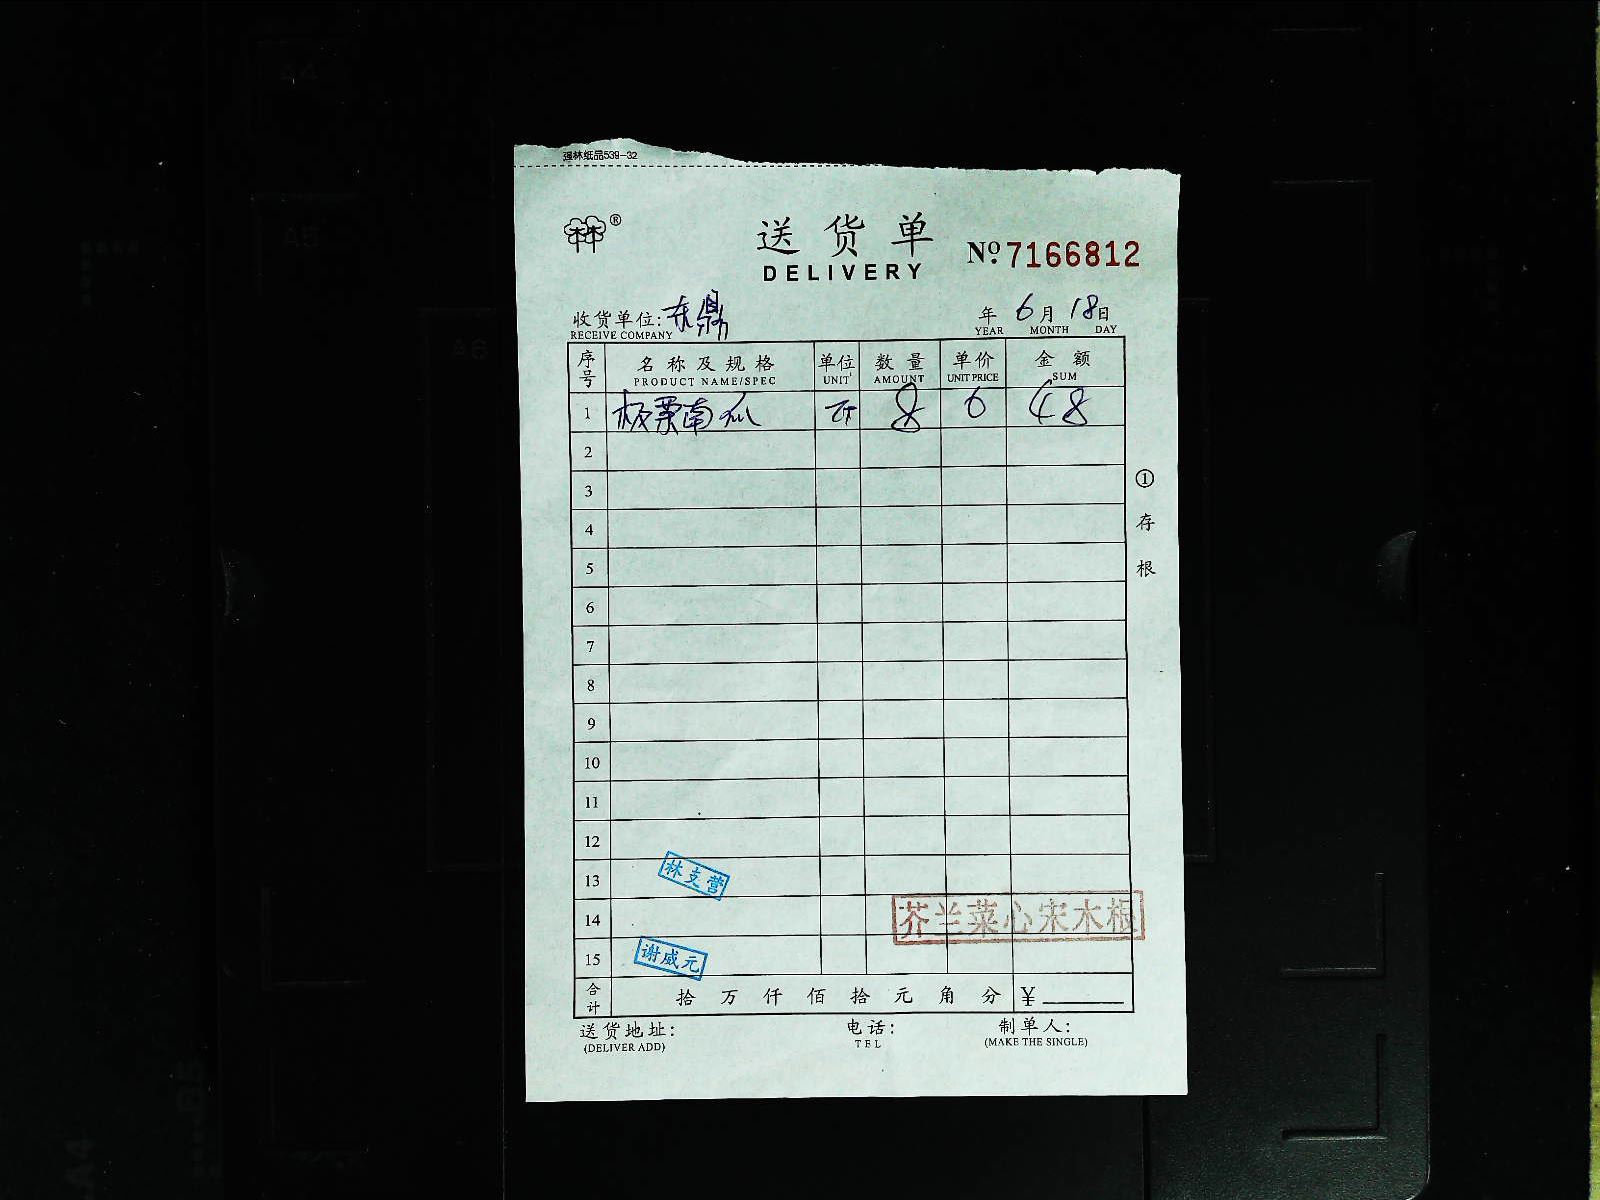 强林纸品539-32
林林®
送货单
DELIVERY
№.7166812
收货单位:东鼎
RECEIVE COMPANY
年 6月 18日
YEAR MONTH DAY
序号 名称及规格 单位 数量 单价 金额
PRODUCT NAME/SPEC UNIT AMOUNT UNIT PRICE SUM
1 板栗南瓜 斤 8 6 48
2
3
4
5
6
7
8
9
10
11
12
13
林支营
14
芥兰菜心宋木根
15
谢威元
合计 拾万仟佰拾元角分 ¥
送货地址: 电话: 制单人:
(DELIVER ADD) TEL (MAKE THE SINGLE)
①存根